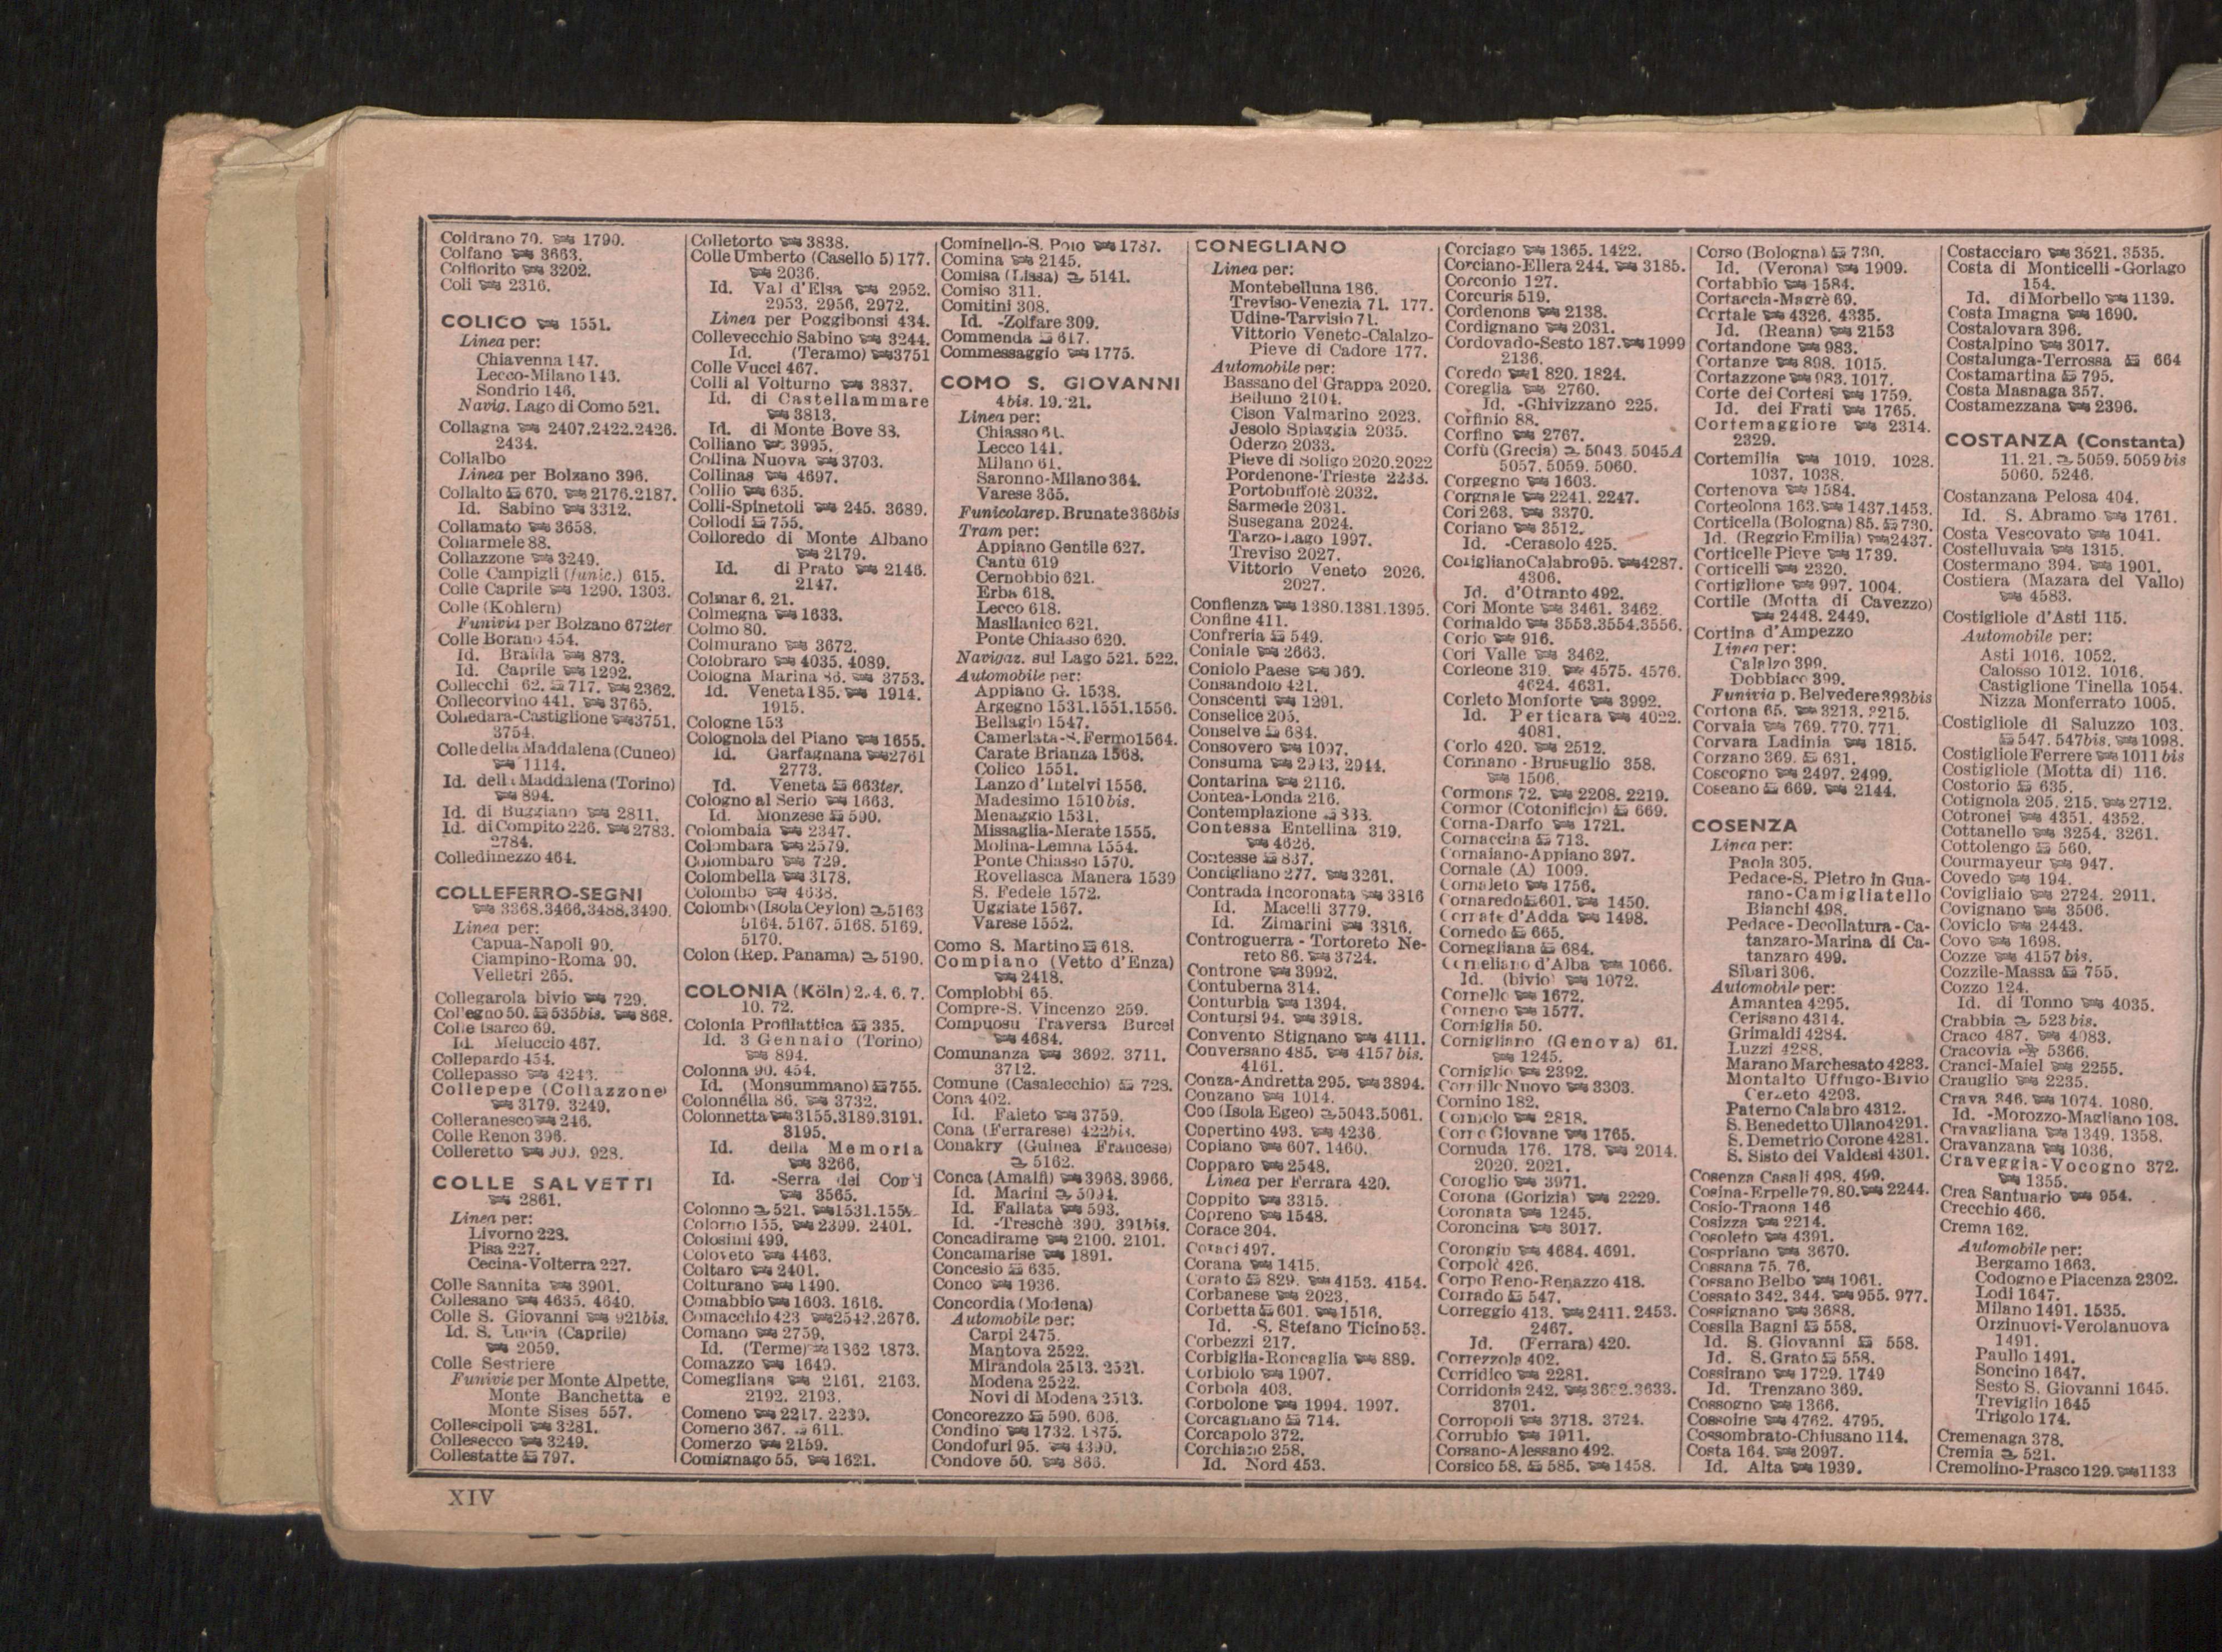 Coldrano 70. 1790.
Colfano 3663.
Colfiorito 3202.
Coli 2316.
COLICO 1551.
Linea per:
Chiavenna 147.
Lecco-Milano 143.
Sondrio 146.
Navig. Lago di Como 521.
Collagna 2407.2422.2426.
2434.
Collalbo
Linea per Bolzano 396.
Collalto 670. 2176.2187.
Id. Sabino 3312.
Collamato 3658.
Collarmele 88.
Collazzone 3249.
Colle Campigli (funic.) 615.
Colle Caprile 1290. 1303.
Colle (Kohlern)
Funivia per Bolzano 672ter
Colle Borano 454.
Id. Braida 873.
Id. Caprile 1292.
Collecchi 62. 717. 2362.
Collecorvino 441. 3765.
Colledara-Castiglione 3751.
3754.
Colle della Maddalena (Cuneo)
1114.
Id. della Maddalena (Torino)
894.
Id. di Buggiano 2811.
Id. di Compito 226. 2783.
2784.
Colledimezzo 464.
COLLEFERRO-SEGNI
3368.3466.3488.3490.
Linea per:
Capua-Napoli 90.
Ciampino-Roma 90.
Velletri 265.
Collegarola bivio 729.
Collegno 50. 535bis. 868.
Colle Isarco 69.
Id. Meluccio 467.
Collepardo 454.
Collepasso 4243.
Collepepe (Collazzone)
3179. 3249.
Colleranesco 246.
Colle Renon 396.
Colleretto 928.
COLLE SALVETTI
2861.
Linea per:
Livorno 228.
Pisa 227.
Cecina-Volterra 227.
Colle Sannita 3901.
Collesano 4635. 4640.
Colle S. Giovanni 921bis.
Id. S. Lucia (Caprile)
2059.
Colle Sestriere
Funivie per Monte Alpette,
Monte Banchetta e
Monte Sises 557.
Collescipoli 3281.
Collesecco 3249.
Collestatte 797.
Colletorto 3838.
Colle Umberto (Casello 5) 177.
2036.
Id. Val d'Elsa 2952.
2953. 2956. 2972.
Linea per Poggibonsi 434.
Collevecchio Sabino 3244.
Id. (Teramo) 3751
Colle Vucci 467.
Colli al Volturno 3837.
Id. di Castellammare
3813.
Id. di Monte Bove 88.
Colliano 3995.
Collina Nuova 3703.
Collinas 4697.
Collio 635.
Colli-Spinetoli 245. 3689.
Collodi 755.
Colloredo di Monte Albano
2179.
Id. di Prato 2146.
2147.
Colmar 6. 21.
Colmegna 1633.
Colmo 80.
Colmurano 3672.
Colobraro 4035. 4089.
Cologna Marina 86. 3753.
Id. Veneta 185. 1914.
1915.
Cologne 153
Colognola del Piano 1655.
Id. Garfagnana 2761
2773.
Id. Veneta 663ter.
Cologno al Serio 1663.
Id. Monzese 590.
Colombaia 2347.
Colombara 2579.
Colombaro 729.
Colombella 3178.
Colombo 4638.
Colombo (Isola Ceylon) 5163
5164. 5167. 5168. 5169.
5170.
Colon (Rep. Panama) 5190.
COLONIA (Köln) 2. 4. 6. 7.
10. 72.
Colonia Profilattica 335.
Id. 3 Gennaio (Torino)
894.
Colonna 90. 454.
Id. (Monsummano) 755.
Colonnella 86. 3732.
Colonnetta 3155.3189.3191.
3195.
Id. della Memoria
3266.
Id. -Serra dei Conti
3565.
Colonno 521. 1531.
Colorno 155. 2399. 2401.
Colosimi 499.
Coloveto 4463.
Coltaro 2401.
Colturano 1490.
Comabbio 1603. 1616.
Comacchio 423 2542.2676.
Comano 2759.
Id. (Terme) 1862 1873.
Comazzo 1649.
Comeglians 2161. 2163.
2192. 2193.
Comeno 2217. 2239.
Comerio 367. 611.
Comerzo 2159.
Comignago 55. 1621.
Cominello-S. Polo 1787.
Comina 2145.
Comisa (Lissa) 5141.
Comiso 311.
Comitini 308.
Id. -Zolfare 309.
Commenda 617.
Commessaggio 1775.
COMO S. GIOVANNI
4bis. 19. 21.
Linea per:
Chiasso 61.
Lecco 141.
Milano 61.
Saronno-Milano 364.
Varese 365.
Funicolare p. Brunate 366bis
Tram per:
Appiano Gentile 627.
Cantù 619
Cernobbio 621.
Erba 618.
Lecco 618.
Maslianico 621.
Ponte Chiasso 620.
Navigaz. sul Lago 521. 522.
Automobile per:
Appiano G. 1538.
Argegno 1531.1551.1556.
Bellagio 1547.
Camerlata-S. Fermo 1564.
Carate Brianza 1568.
Colico 1551.
Lanzo d'Intelvi 1556.
Madesimo 1510bis.
Menaggio 1531.
Missaglia-Merate 1555.
Molina-Lemna 1554.
Ponte Chiasso 1570.
Rovellasca Manera 1539
S. Fedele 1572.
Uggiate 1567.
Varese 1552.
Como S. Martino 618.
Compiano (Vetto d'Enza)
2418.
Compiobbi 65.
Compre-S. Vincenzo 259.
Compuosu Traversa Burcei
4684.
Comunanza 3692. 3711.
3712.
Comune (Casalecchio) 728.
Cona 402.
Id. Faleto 3759.
Cona (Ferrarese) 422bis.
Conakry (Guinea Francese)
5162.
Conca (Amalfi) 3968. 3966.
Id. Marini 5094.
Id. Fallata 593.
Id. -Treschè 390. 391bis.
Concadirame 2100. 2101.
Concamarise 1891.
Concesio 635.
Conco 1936.
Concordia (Modena)
Automobile per:
Carpi 2475.
Mantova 2522.
Mirandola 2513. 2521.
Modena 2522.
Novi di Modena 2513.
Concorezzo 590. 606.
Condino 1732. 1875.
Condofuri 95. 4390.
Condove 50. 866.
CONEGLIANO
Linea per:
Montebelluna 186.
Treviso-Venezia 71. 177.
Udine-Tarvisio 71.
Vittorio Veneto-Calalzo-
Pieve di Cadore 177.
Automobile per:
Bassano del Grappa 2020.
Belluno 2104.
Cison Valmarino 2023.
Jesolo Spiaggia 2035.
Oderzo 2033.
Pieve di Soligo 2020.2022
Pordenone-Trieste 2238.
Portobuffolè 2032.
Sarmede 2031.
Susegana 2024.
Tarzo-Lago 1997.
Treviso 2027.
Vittorio Veneto 2026.
2027.
Confienza 1380.1381.1395.
Confine 411.
Confreria 549.
Coniale 2663.
Coniolo Paese 960.
Consandolo 421.
Conscenti 1291.
Conselice 205.
Conselve 684.
Consovero 1097.
Consuma 2943. 2944.
Contarina 2116.
Contea-Londa 216.
Contemplazione 838.
Contessa Entellina 319.
4626.
Contesse 837.
Contigliano 277. 3261.
Contrada Incoronata 3816
Id. Macelli 3779.
Id. Zimarini 3816.
Controguerra - Tortoreto Ne-
reto 86. 3724.
Controne 3992.
Contuberna 314.
Conturbia 1394.
Contursi 94. 3918.
Convento Stignano 4111.
Conversano 485. 4157bis.
4161.
Conza-Andretta 295. 3894.
Conzano 1014.
Coo (Isola Egeo) 5043.5061.
Copertino 493. 4236.
Copiano 607. 1460.
Copparo 2548.
Linea per Ferrara 420.
Coppito 3315.
Copreno 1548.
Corace 304.
Coraci 497.
Corana 1415.
Corato 829. 4153. 4154.
Corbanese 2023.
Corbetta 601. 1516.
Id. -S. Stefano Ticino 53.
Corbezzi 217.
Corbiglia-Roncaglia 889.
Corbiolo 1907.
Corbola 403.
Corbolone 1994. 1997.
Corcagnano 714.
Corcapolo 372.
Corchiano 258.
Id. Nord 453.
Corciago 1365. 1422.
Corciano-Ellera 244. 3185.
Corconio 127.
Corcuris 519.
Cordenons 2138.
Cordignano 2031.
Cordovado-Sesto 187. 1999
2136.
Coredo 1820. 1824.
Coreglia 2760.
Id. -Ghivizzano 225.
Corfinio 88.
Corfino 2767.
Corfù (Grecia) 5043. 5045A
5057. 5059. 5060.
Corgegno 1603.
Corgnale 2241. 2247.
Cori 263. 3370.
Coriano 3512.
Id. -Cerasolo 425.
Corigliano Calabro 95. 4287.
4306.
Id. d'Otranto 492.
Cori Monte 3461. 3462
Corinaldo 3553.3554.3556.
Corio 916.
Cori Valle 3462.
Corleone 319. 4575. 4576.
4624. 4631.
Corleto Monforte 3992.
Id. Perticara 4022.
4081.
Corlo 420. 2512.
Cormano - Brusuglio 358.
1506.
Cormons 72. 2208. 2219.
Cormor (Cotonificio) 669.
Corna-Darfo 1721.
Cornaccina 713.
Cornaiano-Appiano 397.
Cornale (A) 1009.
Cornaleto 1756.
Cornaredo 601. 1450.
Cornate d'Adda 1498.
Cornedo 665.
Cornegliana 684.
Corneliano d'Alba 1066.
Id. (bivio) 1072.
Cornello 1672.
Corneno 1577.
Corniglia 50.
Cornigliano (Genova) 61.
1245.
Corniglio 2392.
Cornillo Nuovo 3303.
Cornino 182.
Corniolo 2818.
Corno Giovane 1765.
Cornuda 176. 178. 2014.
2020. 2021.
Coroglio 3971.
Corona (Gorizia) 2229.
Coronata 1245.
Coroncina 3017.
Corongiu 4684. 4691.
Corpolò 426.
Corpo Reno-Renazzo 418.
Corrado 547.
Correggio 413. 2411. 2453.
2467.
Id. (Ferrara) 420.
Correzzola 402.
Corridico 2281.
Corridonia 242. 3632.3633.
3701.
Corropoli 3718. 3724.
Corrubio 1911.
Corsano-Alessano 492.
Corsico 58. 585. 1458.
Corso (Bologna) 730.
Id. (Verona) 1909.
Cortabbio 1584.
Cortaccia-Magrè 69.
Cortale 4326. 4335.
Id. (Reana) 2153
Cortandone 983.
Cortanze 898. 1015.
Cortazzone 983. 1017.
Corte dei Cortesi 1759.
Id. dei Frati 1765.
Cortemaggiore 2314.
2329.
Cortemilia 1019. 1028.
1037. 1038.
Cortenova 1584.
Corteolona 163. 1437.1453.
Corticella (Bologna) 85. 730.
Id. (Reggio Emilia) 2437.
Corticelle Pieve 1739.
Corticelli 2320.
Cortiglione 997. 1004.
Cortile (Motta di Cavezzo)
2448. 2449.
Cortina d'Ampezzo
Linea per:
Calalzo 399.
Dobbiaco 399.
Funivia p. Belvedere 393bis
Cortona 65. 3213. 3215.
Corvaia 769. 770. 771.
Corvara Ladinia 1815.
Corzano 369. 631.
Coscogno 2497. 2499.
Coseano 669. 2144.
COSENZA
Linea per:
Paola 305.
Pedace-S. Pietro in Gua-
rano-Camigliatello
Bianchi 498.
Pedace - Decollatura - Ca-
tanzaro-Marina di Ca-
tanzaro 499.
Sibari 306.
Automobile per:
Amantea 4295.
Cerisano 4314.
Grimaldi 4284.
Luzzi 4288.
Marano Marchesato 4283.
Montalto Uffugo-Bivio
Cerzeto 4293.
Paterno Calabro 4312.
S. Benedetto Ullano 4291.
S. Demetrio Corone 4281.
S. Sisto dei Valdesi 4301.
Cosenza Casali 498. 499.
Cosina-Erpelle 79. 80. 2244.
Cosio-Traona 146
Cosizza 2214.
Cosoleto 4391.
Cospriano 3670.
Cossana 75. 76.
Cossano Belbo 1061.
Cossato 342. 344. 955. 977.
Cossignano 3688.
Cossila Bagni 558.
Id. S. Giovanni 558.
Id. S. Grato 558.
Cossirano 1729. 1749
Id. Trenzano 369.
Cossogno 1366.
Cossoine 4762. 4795.
Cossombrato-Chiusano 114.
Costa 164. 2097.
Id. Alta 1939.
Costacciaro 3521. 3535.
Costa di Monticelli - Gorlago
154.
Id. di Morbello 1139.
Costa Imagna 1690.
Costalovara 396.
Costalpino 3017.
Costalunga-Terrossa 664
Costamartina 795.
Costa Masnaga 357.
Costamezzana 2396.
COSTANZA (Constanta)
11. 21. 5059. 5059bis
5060. 5246.
Costanzana Pelosa 404.
Id. S. Abramo 1761.
Costa Vescovato 1041.
Costelluvaia 1315.
Costermano 394. 1901.
Costiera (Mazara del Vallo)
4583.
Costigliole d'Asti 115.
Automobile per:
Asti 1016. 1052.
Calosso 1012. 1016.
Castiglione Tinella 1054.
Nizza Monferrato 1005.
Costigliole di Saluzzo 103.
547. 547bis. 1098.
Costigliole Ferrere 1011bis
Costigliole (Motta di) 116.
Costorio 635.
Cotignola 205. 215. 2712.
Cotronei 4351. 4352.
Cottanello 3254. 3261.
Cottolengo 560.
Courmayeur 947.
Covedo 194.
Covigliaio 2724. 2911.
Covignano 3506.
Coviolo 2443.
Covo 1698.
Cozze 4157bis.
Cozzile-Massa 755.
Cozzo 124.
Id. di Tonno 4035.
Crabbia 523bis.
Craco 487. 4083.
Cracovia 5366.
Cranci-Maiel 2255.
Crauglio 2235.
Crava 346. 1074. 1080.
Id. -Morozzo-Magliano 108.
Cravagliana 1349. 1358.
Cravanzana 1036.
Craveggia-Vocogno 372.
1355.
Crea Santuario 954.
Crecchio 466.
Crema 162.
Automobile per:
Bergamo 1663.
Codogno e Piacenza 2302.
Lodi 1647.
Milano 1491. 1535.
Orzinuovi-Verolanuova
1491.
Paullo 1491.
Soncino 1647.
Sesto S. Giovanni 1645.
Treviglio 1645
Trigolo 174.
Cremenaga 378.
Cremia 521.
Cremolino-Prasco 129. 1133
XIV